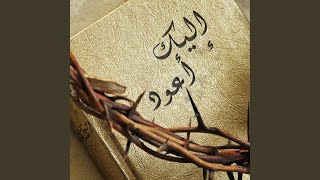 إليك
أعود